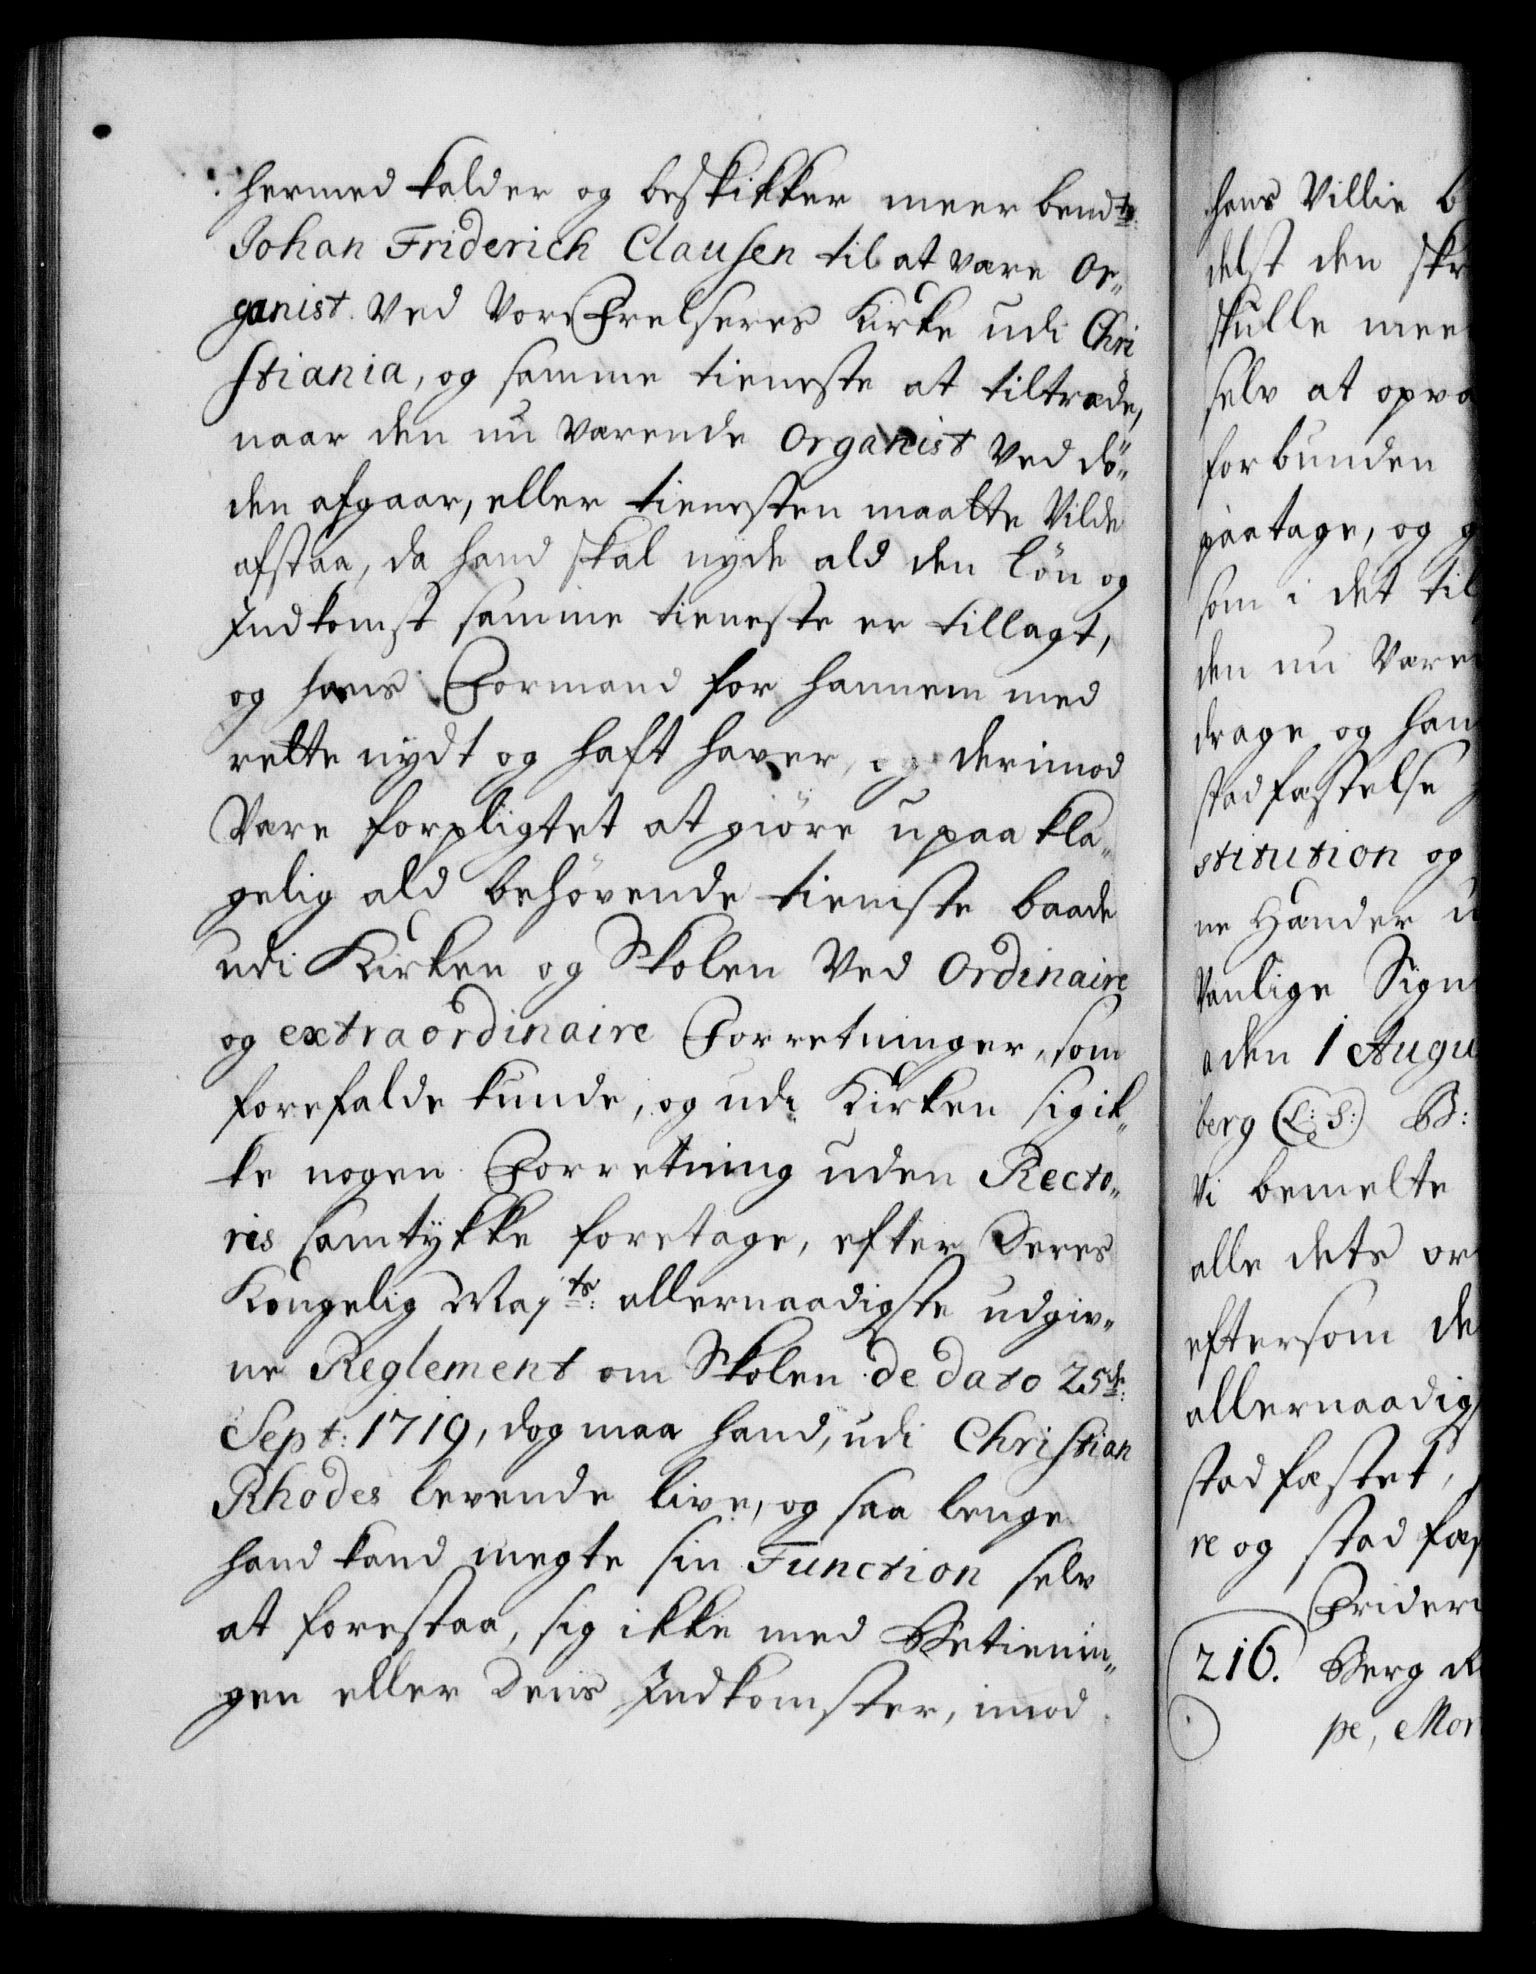 hermed kalder og beskikker meerbem.te
Johan Friderich Clausen til at være Or„
ganist ved Vor Frelseres Kirke udi Chri
stiania, og samme tieneste at tiltræde,
naar den nu værende Organist ved dö„
den afgaar, eller tienesten maatte vilde
afstaa, da hand skal nyde ald den lön og
Indkomst samme tieneste er tillagt,
og hans Formand for hannem med
rette nydt og haft haver, og derimod
være forpligtet at giöre upaa kla„
gelig ald behövende tieniste baade
udi Kirken og Skolen ved Ordinaire
og extraordinaire Forretninger, som
forefalde kunde, og udi Kirken sig ik„
ke nogen Forretning uden Recto„
ris samtykke foretage, efter Deres
Kongelig May.ts: allernaadigste udgiv„
ne Reglement om Skolen de dato 25de:
Sept: 1719, dog maa hand, udi Christian
Rhodes levende live, og saa lenge
hand kand megte sin Function selv
at forestaa, sig ikke med Betienin„
gen eller dens Indkomster, imod
hans Villie b
delst den skr
skulle mee
selv at opva
forbunden
paatage, og g
som i det til
den nu være
drage og han
stadfæstelse
stitution og
ne Hænder u
vanlige Sign
den 1 Augu
berg (L: S:) B:
Vi bemelte
alle dets or
eftersom de
allernaadig
stadfæstet,
re og stadfæ
Frideri
216. Berg R
pe, Mor